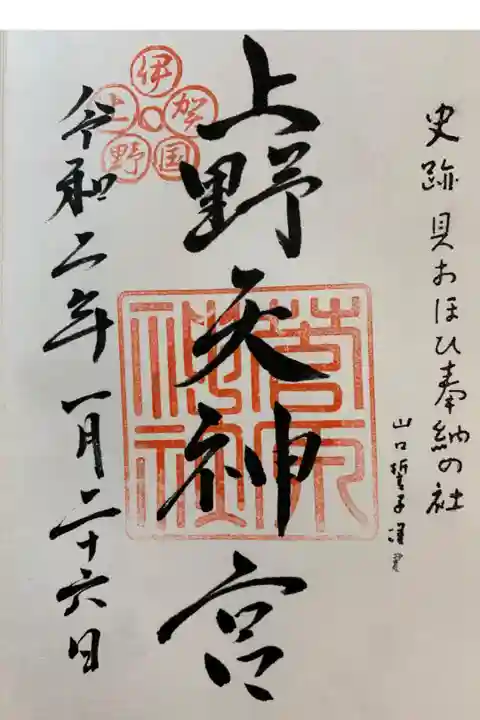 史跡 貝おほひ奉納の社
山口誓子
上野天神宮
伊賀国上野
菅原神社
令和二年一月二十六日